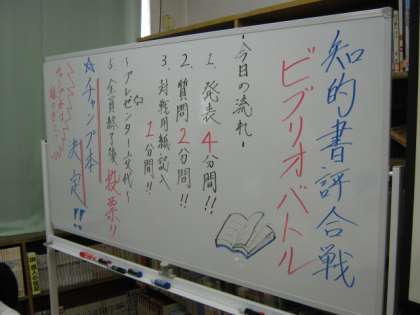 知的書評合戦
ビブリオバトル
・今日の流れ・
1. 発表 4分間!!
2. 質問 2分間!!
3. 対戦用紙記入
1分間!!
〜プレゼンター交代〜
5. 全員終了後 投票!!
☆チャンプ本
決定!!